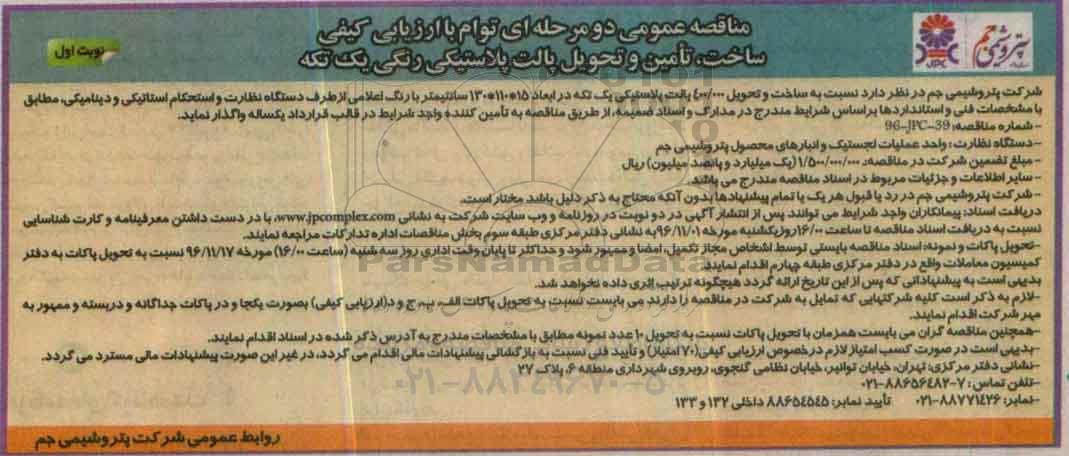 مناقصه عمومی دو مرحله ای توام با ارزیابی کیفی
ساخت، تأمین و تحویل پالت پلاستیکی رنگی یک تکه
نوبت اول
پتروشیمی جم
JPC
شرکت پتروشیمی جم در نظر دارد نسبت به ساخت و تحویل ۴۰۰/۰۰۰ پالت پلاستیکی یک تکه در ابعاد ۱۵*۱۱۰*۱۳۰ سانتیمتر با رنگ اعلامی از طرف دستگاه نظارت و استحکام استاتیکی و دینامیکی، مطابق
با مشخصات فنی و استانداردها براساس شرایط مندرج در مدارک و اسناد ضمیمه، از طریق مناقصه به تأمین کننده واجد شرایط در قالب قرارداد یکساله واگذار نماید.
- شماره مناقصه: 96-JPC-39
- دستگاه نظارت: واحد عملیات لجستیک و انبارهای محصول پتروشیمی جم
- مبلغ تضمین شرکت در مناقصه: ۱/۵۰۰/۰۰۰/۰۰۰ (یک میلیارد و پانصد میلیون) ریال
- سایر اطلاعات و جزئیات مربوط در اسناد مناقصه مندرج می باشد.
- شرکت پتروشیمی جم در رد یا قبول هر یک یا تمام پیشنهادها بدون آنکه محتاج به ذکر دلیل باشد مختار است.
دریافت اسناد: پیمانکاران واجد شرایط می توانند پس از انتشار آگهی در دو نوبت در روزنامه و وب سایت شرکت به نشانی www.jpcomplex.com، با در دست داشتن معرفینامه و کارت شناسایی
نسبت به دریافت اسناد مناقصه تا ساعت ۱۶/۰۰ روز یکشنبه مورخه ۹۶/۱۱/۰۱ به نشانی دفتر مرکزی طبقه سوم بخش مناقصات اداره تدارکات مراجعه نمایند.
-تحویل پاکات و نمونه: اسناد مناقصه بایستی توسط اشخاص مجاز تکمیل، امضا و ممهور شود و حداکثر تا پایان وقت اداری روز سه شنبه (ساعت ۱۶/۰۰) مورخه ۹۶/۱۱/۱۷ نسبت به تحویل پاکات به دفتر
کمیسیون معاملات واقع در دفتر مرکزی طبقه چهارم اقدام نمایند.
بدیهی است به پیشنهاداتی که پس از این تاریخ ارائه گردد هیچگونه ترتیب اثری داده نخواهد شد.
-لازم به ذکر است کلیه شرکتهایی که تمایل به شرکت در مناقصه را دارند می بایست نسبت به تحویل پاکات الف، ب، ج و د(ارزیابی کیفی) بصورت یکجا و در پاکات جداگانه و دربسته و ممهور به
مهر شرکت اقدام نمایند.
-همچنین مناقصه گران می بایست همزمان با تحویل پاکات نسبت به تحویل ۱۰ عدد نمونه مطابق با مشخصات مندرج به آدرس ذکر شده در اسناد اقدام نمایند.
-بدیهی است در صورت کسب امتیاز لازم در خصوص ارزیابی کیفی(۷۰ امتیاز) و تأیید فنی نسبت به بازگشائی پیشنهادات مالی اقدام می گردد، در غیر این صورت پیشنهادات مالی مسترد می گردد.
-نشانی دفتر مرکزی: تهران، خیابان توانیر، خیابان نظامی گنجوی، روبروی شهرداری منطقه ۶، پلاک ۲۷
-تلفن تماس: ۷-۸۸۶۵۶۴۸۲-۰۲۱
-نمابر: ۸۸۷۷۱۴۲۶-۰۲۱ تأیید نمابر: ۸۸۶۵۴۵۴۵ داخلی ۱۳۲ و ۱۳۳
روابط عمومی شرکت پتروشیمی جم
ParsNamadData
۰۲۱-۸۸۳۴۹۶۷۰-۵